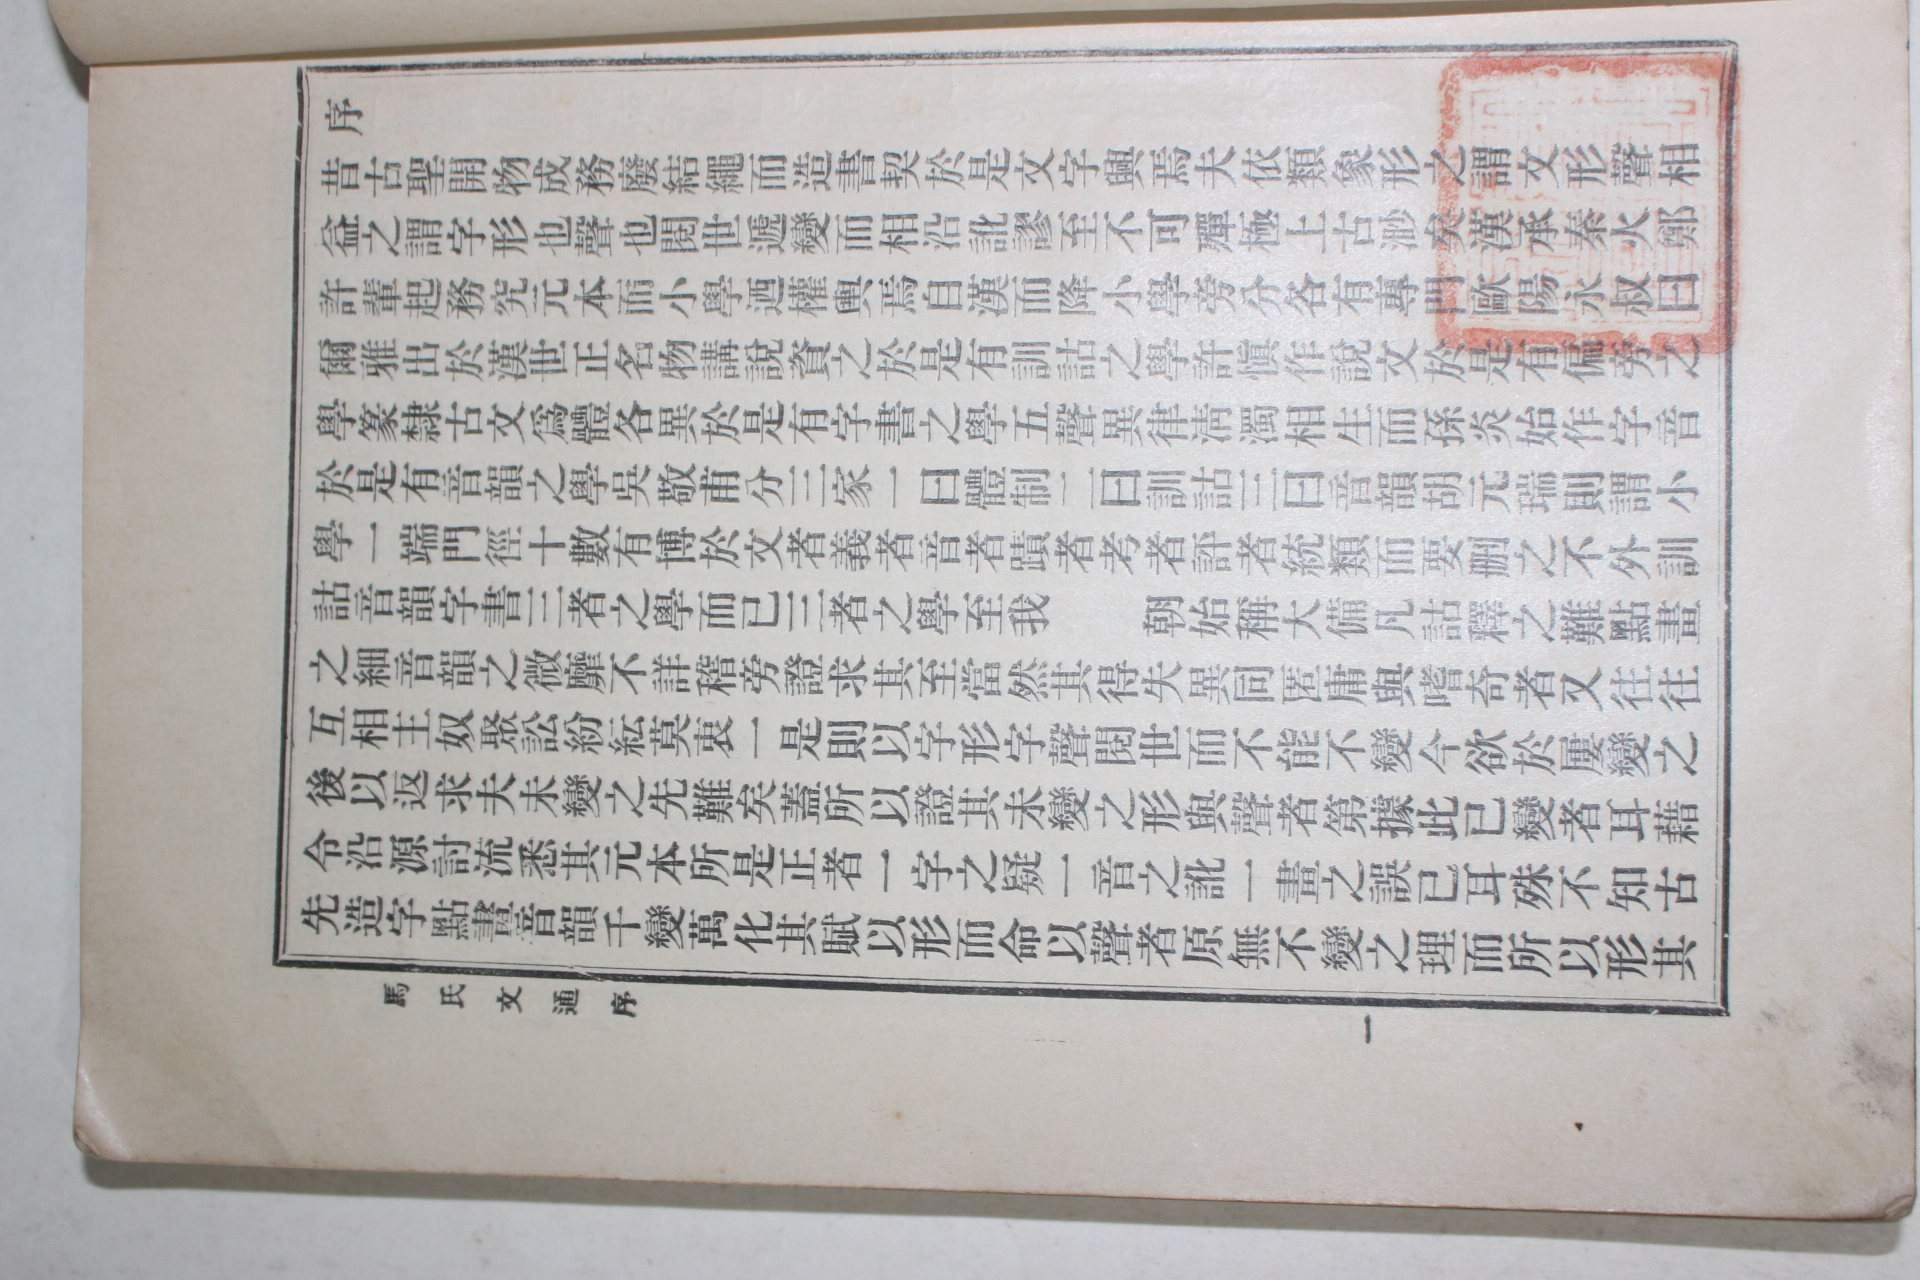 序
昔古聖開物成務廢結繩而造書契於是文字興焉夫依類象形之謂文形聲相
益之謂字形也聲也閱世遞變而相沿訛謬至不可殫極上古渺矣漢承秦火鄭
許輩起務究元本而小學迺權輿焉自漢而降小學旁分各有專門歐陽永叔曰
爾雅出於漢世正名物講說資之於是有訓詁之學許愼作說文於是有偏旁之
學篆隸古文爲體各異於是有字書之學五聲異律淸濁相生而孫炎始作字音
於是有音韻之學吳敬甫分三家一曰體制二曰訓詁三曰音韻胡元瑞則謂小
學一端門徑十數有博於文者義者音者蹟者考者評者統類而要删之不外訓
詁音韻字書三者之學而已三者之學至我　朝始稱大備凡詁釋之難點畫
之細音韻之微靡不詳稽旁證求其至當然其得失異同匿庸與嗜奇者又往往
互相主奴聚訟紛紜莫衷一是則以字形字聲閱世而不能不變今欲於屢變之
後以返求夫未變之先難矣蓋所以證其未變之形與聲者第據此已變者耳藉
令沿源討流悉其元本所是正者一字之疑一音之訛一畫之誤已耳殊不知古
先造字點畫音韻千變萬化其賦以形而命以聲者原無不變之理而所以形其
馬氏文通序
一